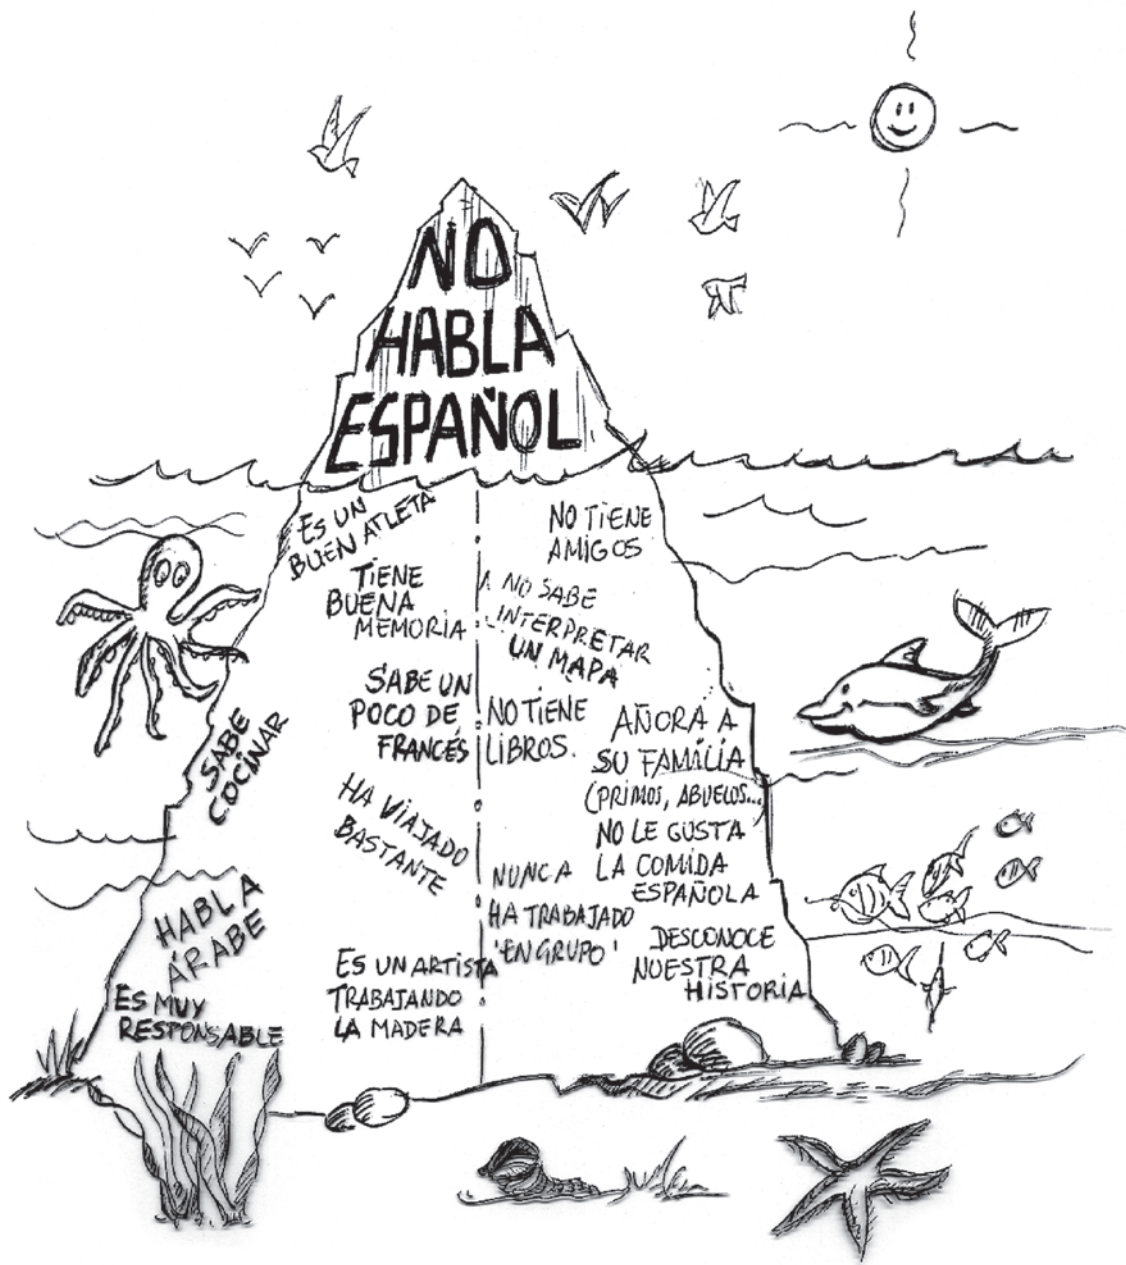 NO
HABLA
ESPAÑOL
ES UN
BUEN ATLETA
TIENE
BUENA
MEMORIA
SABE UN
POCO DE
FRANCÉS
SABE
COCINAR
HA VIAJADO
BASTANTE
HABLA
ÁRABE
ES UN ARTISTA
TRABAJANDO
LA MADERA
ES MUY
RESPONSABLE
NO TIENE
AMIGOS
NO SABE
INTERPRETAR
UN MAPA
NO TIENE
LIBROS.
AÑORA A
SU FAMILIA
(PRIMOS, ABUELOS...)
NO LE GUSTA
LA COMIDA
ESPAÑOLA
NUNCA
HA TRABAJADO
'EN GRUPO'
DESCONOCE
NUESTRA
HISTORIA